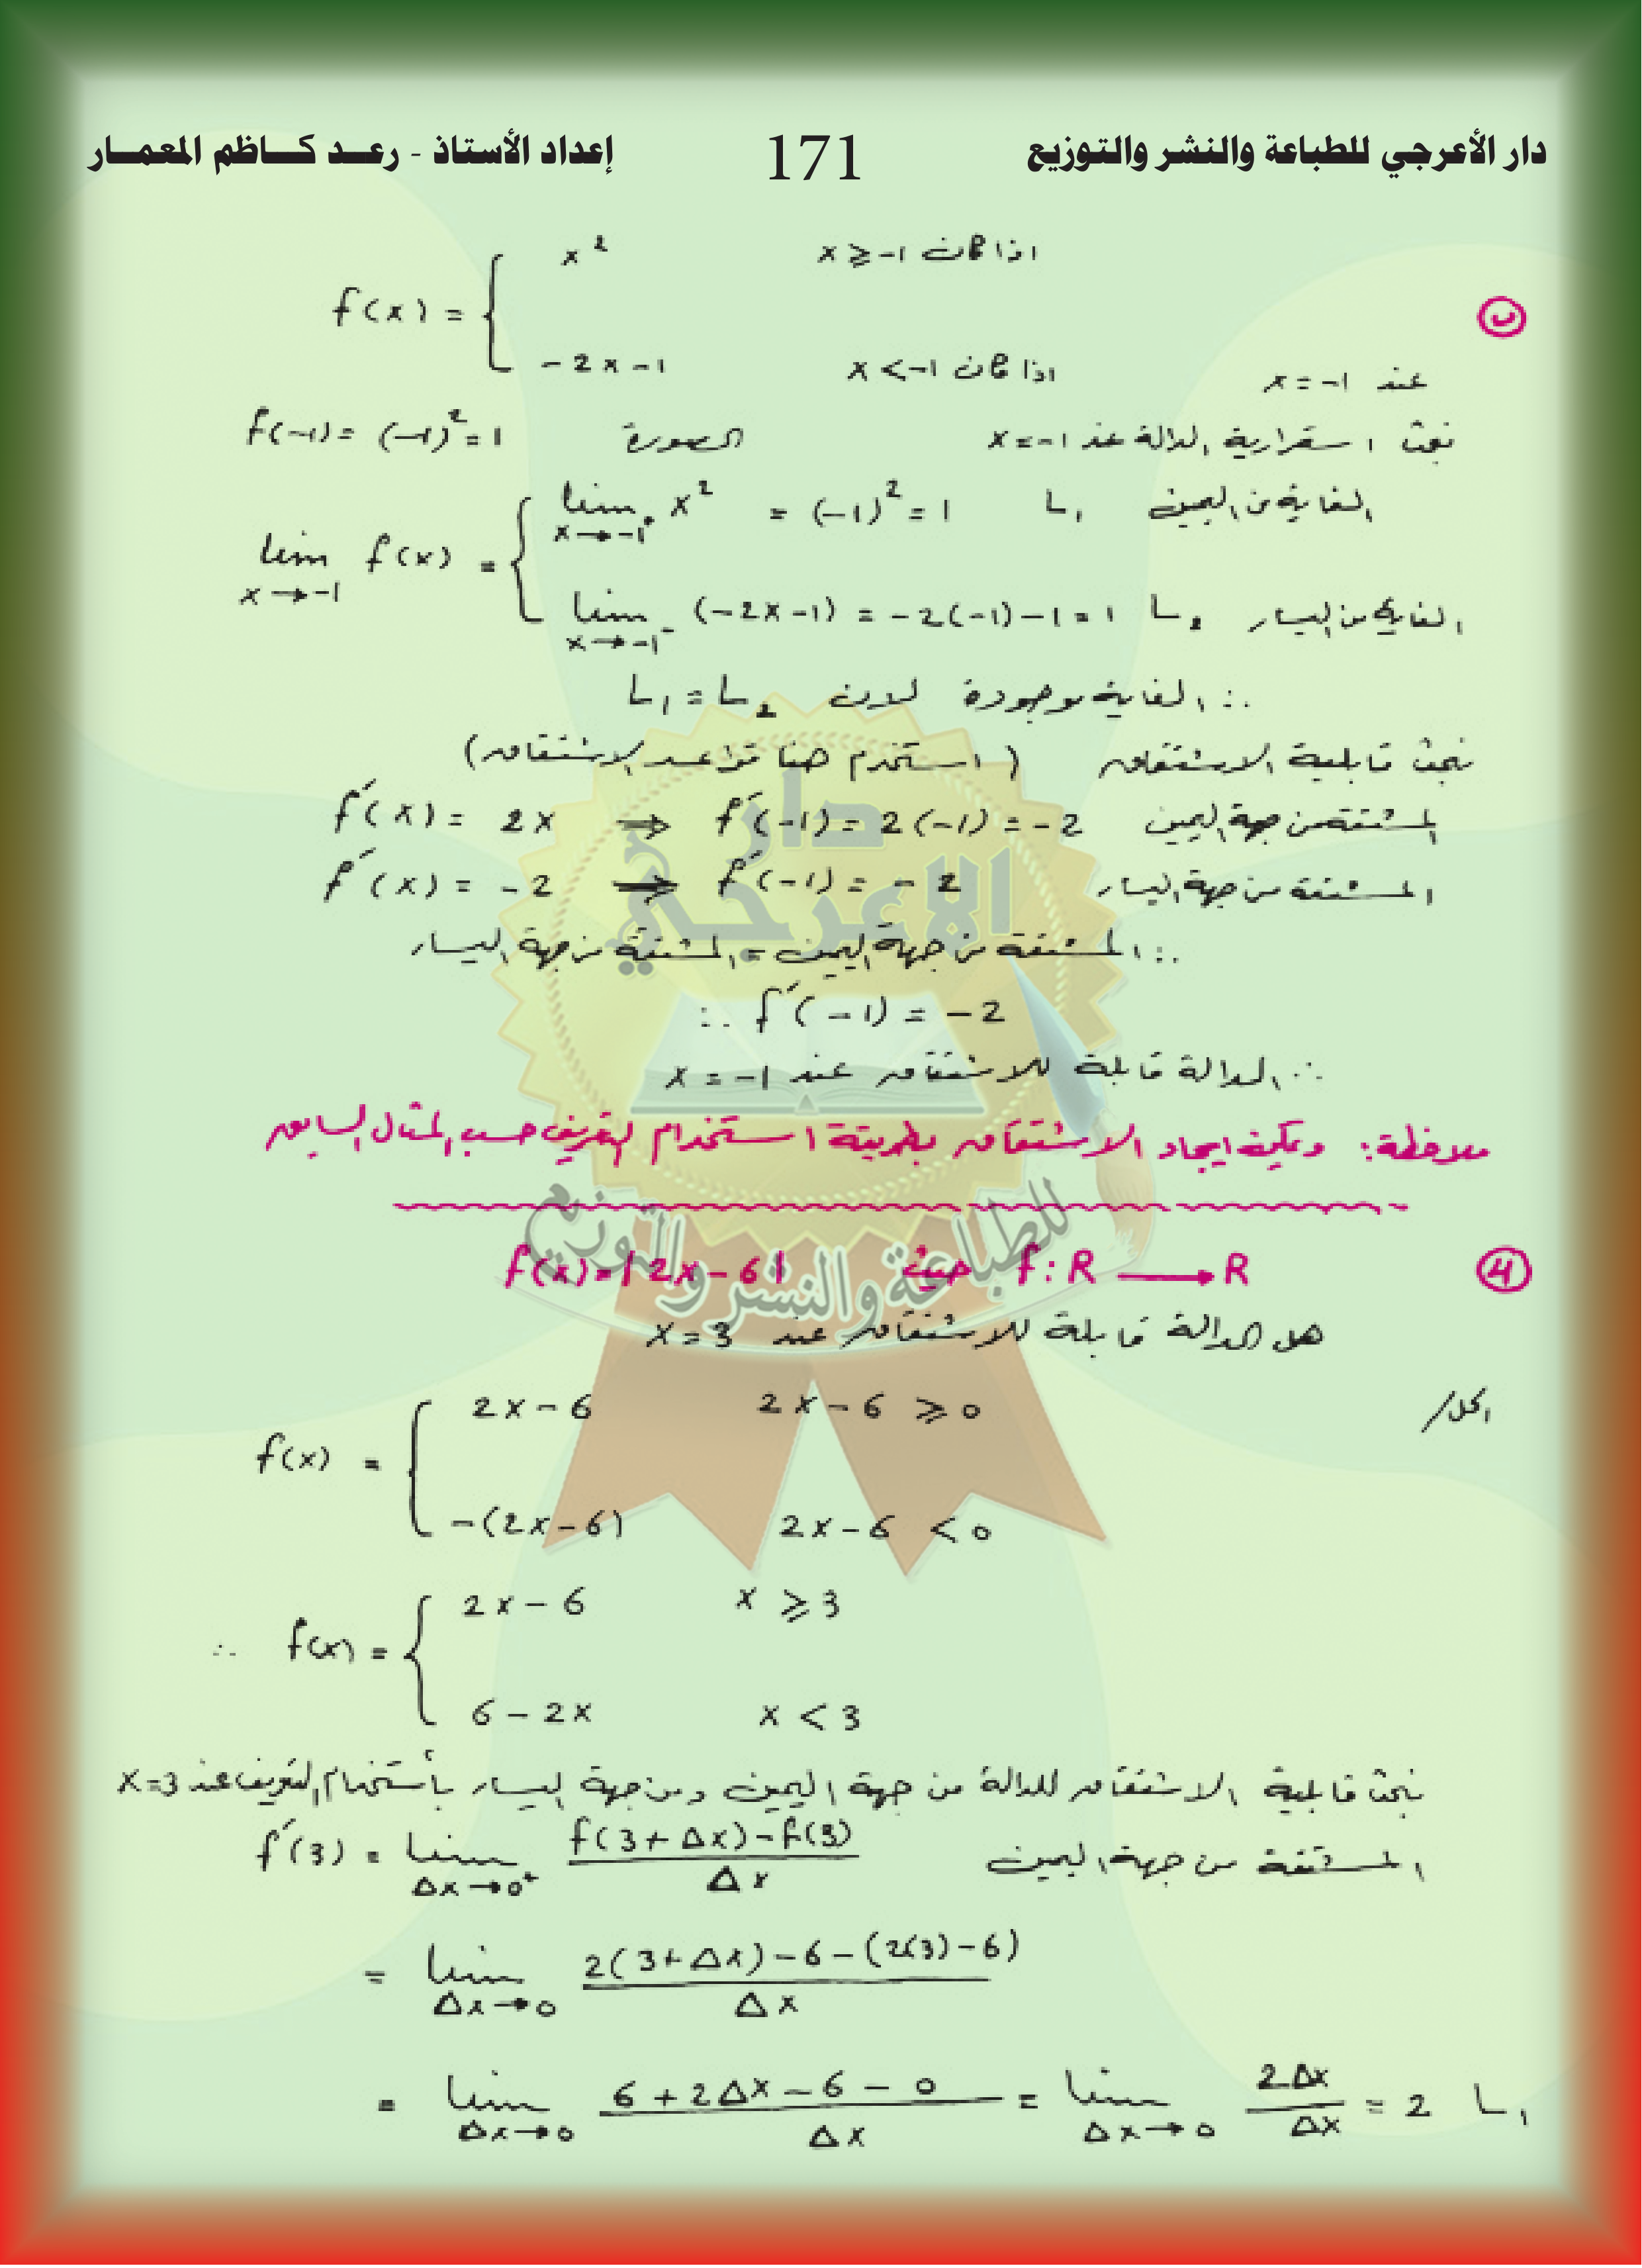 دار الأعرجي للطباعة والنشر والتوزيع 171 إعداد الأستاذ - رعـد كـاظم المعمـار
ب
f(x) = { x² اذا كان x ≥ -1
-2x-1 اذا كان x < -1
عند x = -1
نبحث استمرارية الدالة عند x = -1 الصورة f(-1) = (-1)² = 1
lim x→-1 f(x) = { lim x→-1⁺ x² = (-1)² = 1 L₁ الغاية من اليمين
lim x→-1⁻ (-2x-1) = -2(-1)-1 = 1 L₂ الغاية من اليسار
∴ الغاية موجودة لان L₁ = L₂
نبحث قابلية الاشتقاق (استخدم هنا قواعد الاشتقاق)
المشتقة من جهة اليمين f′(x) = 2x ⇒ f′(-1) = 2(-1) = -2
المشتقة من جهة اليسار f′(x) = -2 ⇒ f′(-1) = -2
∴ المشتقة من جهة اليمين = المشتقة من جهة اليسار
∴ f′(-1) = -2
∴ الدالة قابلة للاشتقاق عند x = -1
ملاحظة: ويمكن ايجاد الاشتقاق بطريقة استخدام التعريف حسب المثال السابق
4 f: R → R حيث f(x) = |2x-6|
هل الدالة قابلة للاشتقاق عند x = 3
الحل/
f(x) = { 2x-6 2x-6 ≥ 0
-(2x-6) 2x-6 < 0
∴ f(x) = { 2x-6 x ≥ 3
6-2x x < 3
نبحث قابلية الاشتقاق للدالة من جهة اليمين ومن جهة اليسار بأستخدام التعريف عند x=3
المشتقة من جهة اليمين f′(3) = lim Δx→0⁺ (f(3+Δx)-f(3))/Δx
= lim Δx→0 (2(3+Δx)-6-(2(3)-6))/Δx
= lim Δx→0 (6+2Δx-6-0)/Δx = lim Δx→0 2Δx/Δx = 2 L₁
دار
الاعرجي
للطباعة والنشر والتوزيع